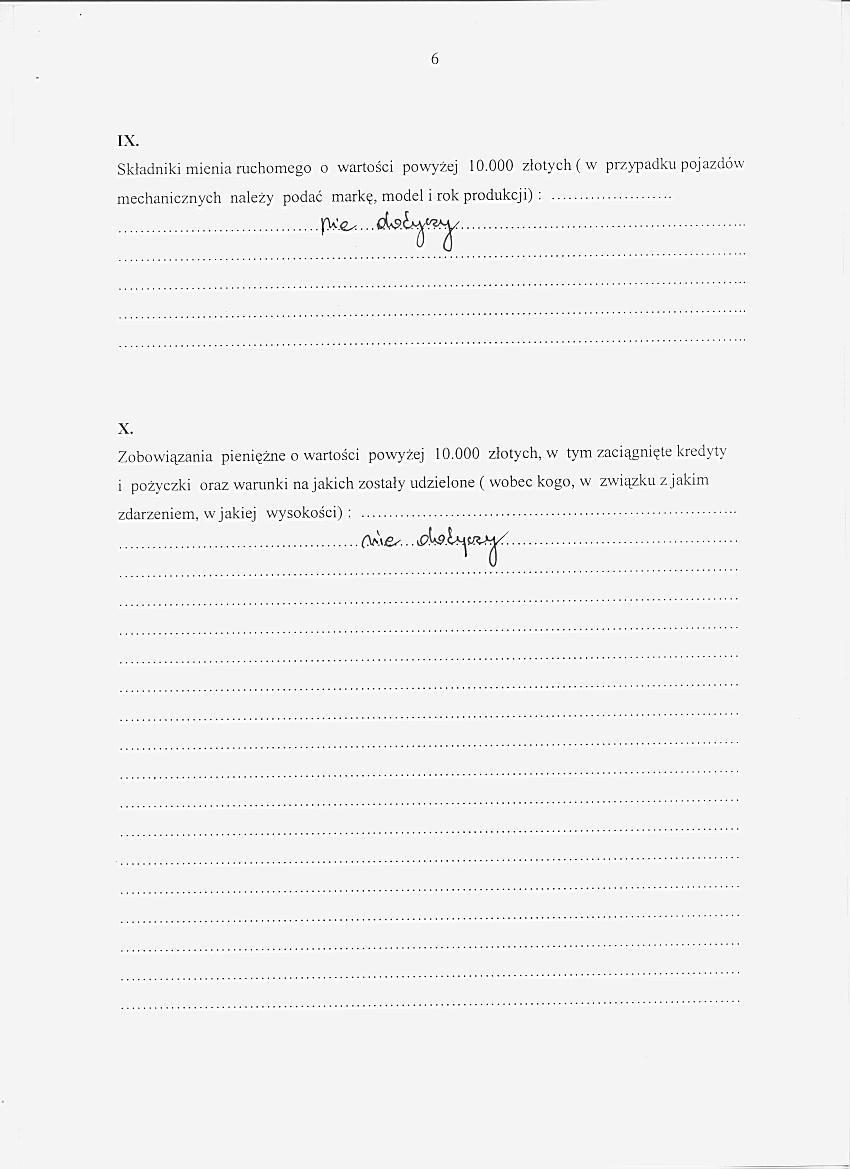 6
IX.
Składniki mienia ruchomego o wartości powyżej 10.000 złotych ( w przypadku pojazdów
mechanicznych należy podać markę, model i rok produkcji) : ......................
nie dotyczy
X.
Zobowiązania pieniężne o wartości powyżej 10.000 złotych, w tym zaciągnięte kredyty
i pożyczki oraz warunki na jakich zostały udzielone ( wobec kogo, w związku z jakim
zdarzeniem, w jakiej wysokości) : ....................................................................
nie dotyczy